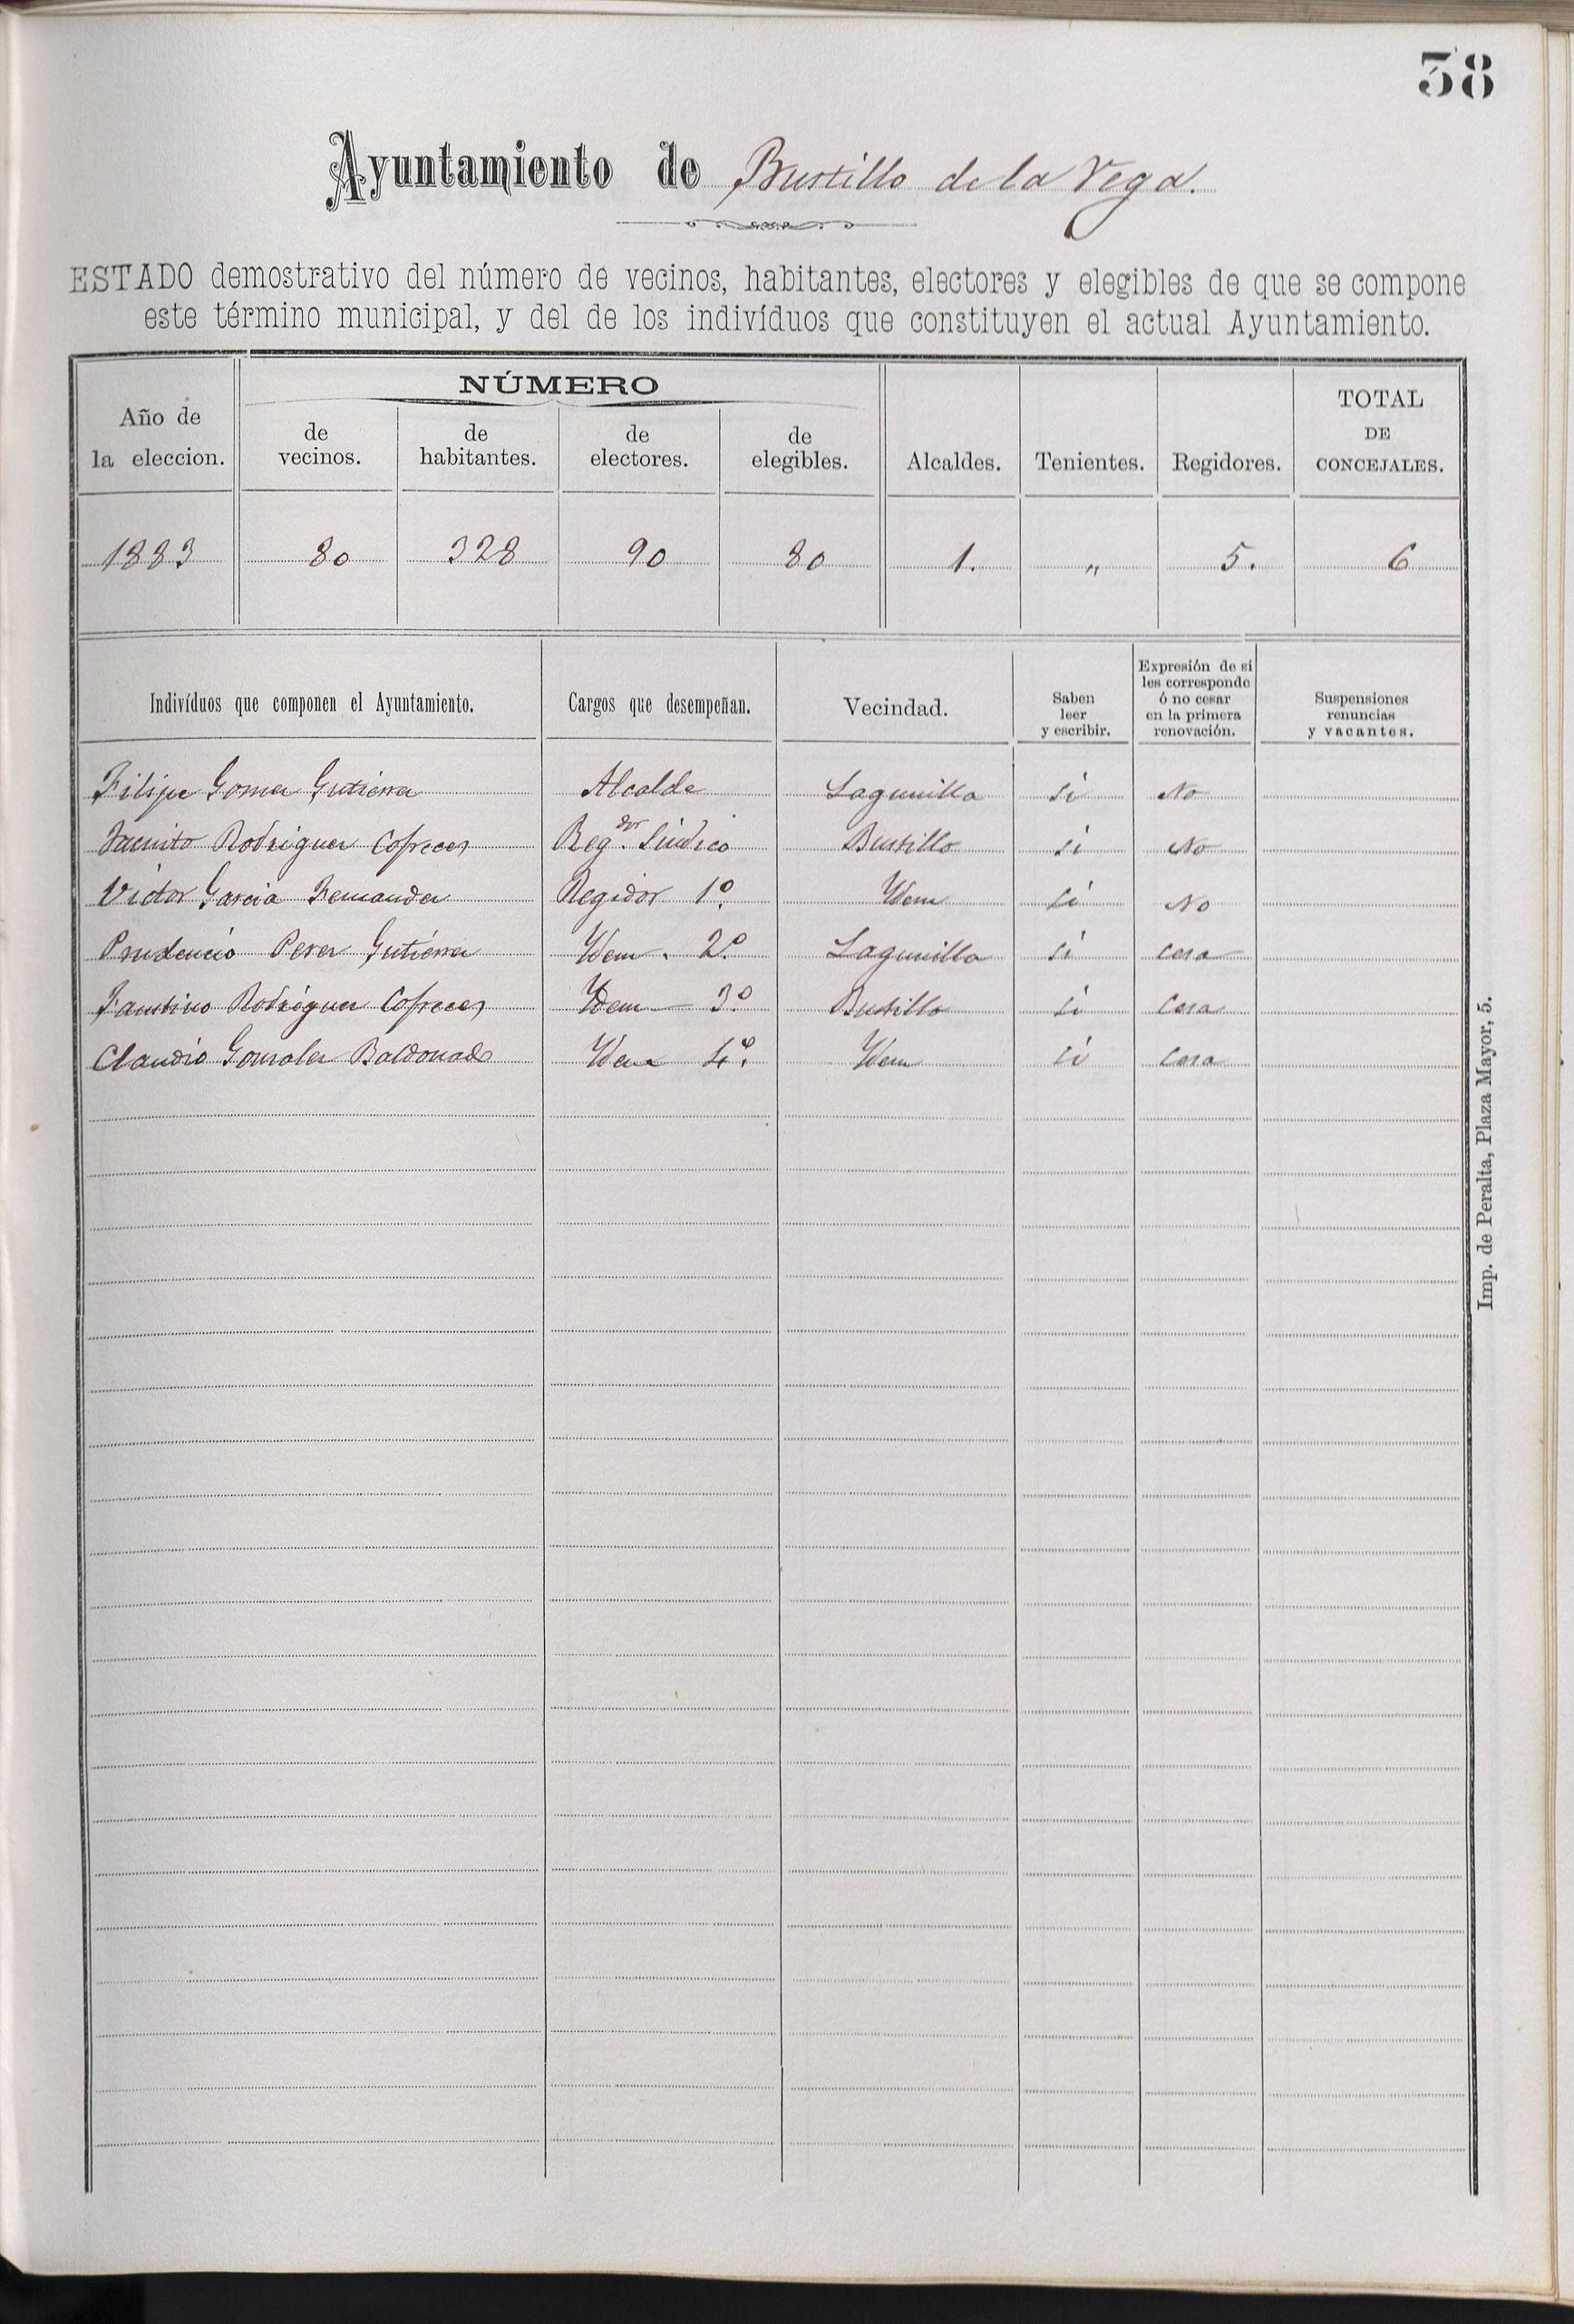 38
Ayuntamiento de Bustillo de la Vega.
ESTADO demostrativo del número de vecinos, habitantes, electores y elegibles de que se compone
este término municipal, y del de los indivíduos que constituyen el actual Ayuntamiento.
Año de la eleccion. NÚMERO de vecinos. de habitantes. de electores. de elegibles. Alcaldes. Tenientes. Regidores. TOTAL DE CONCEJALES.
1883 80 328 90 80 1. " 5. 6
Indivíduos que componen el Ayuntamiento. Cargos que desempeñan. Vecindad. Saben leer y escribir. Expresión de si les corresponde ó no cesar en la primera renovación. Suspensiones renuncias y vacantes.
Felipe Gomez Gutierrez Alcalde Lagunilla si No
Jacinto Rodriguez Cofreces Reg.dor Sindico Bustillo si No
Victor Garcia Fernandez Regidor 1º Ydem si No
Prudencio Perez Gutierrez Ydem. 2º Lagunilla si cesa
Faustino Rodriguez Cofreces Ydem 3º Bustillo si Cesa
Claudio Gonzalez Baldonado Ydem 4º Ydem si Cesa
Imp. de Peralta, Plaza Mayor, 5.